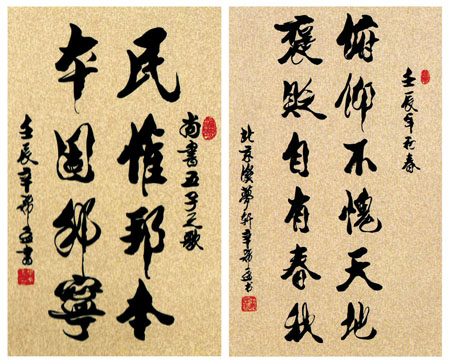 尚書五子之歌
民惟邦本
夲固邦寧
壬辰辛希孟書
壬辰年初春
俯仰不愧天地
褒貶自有春秋
北京漢夢軒辛希孟書